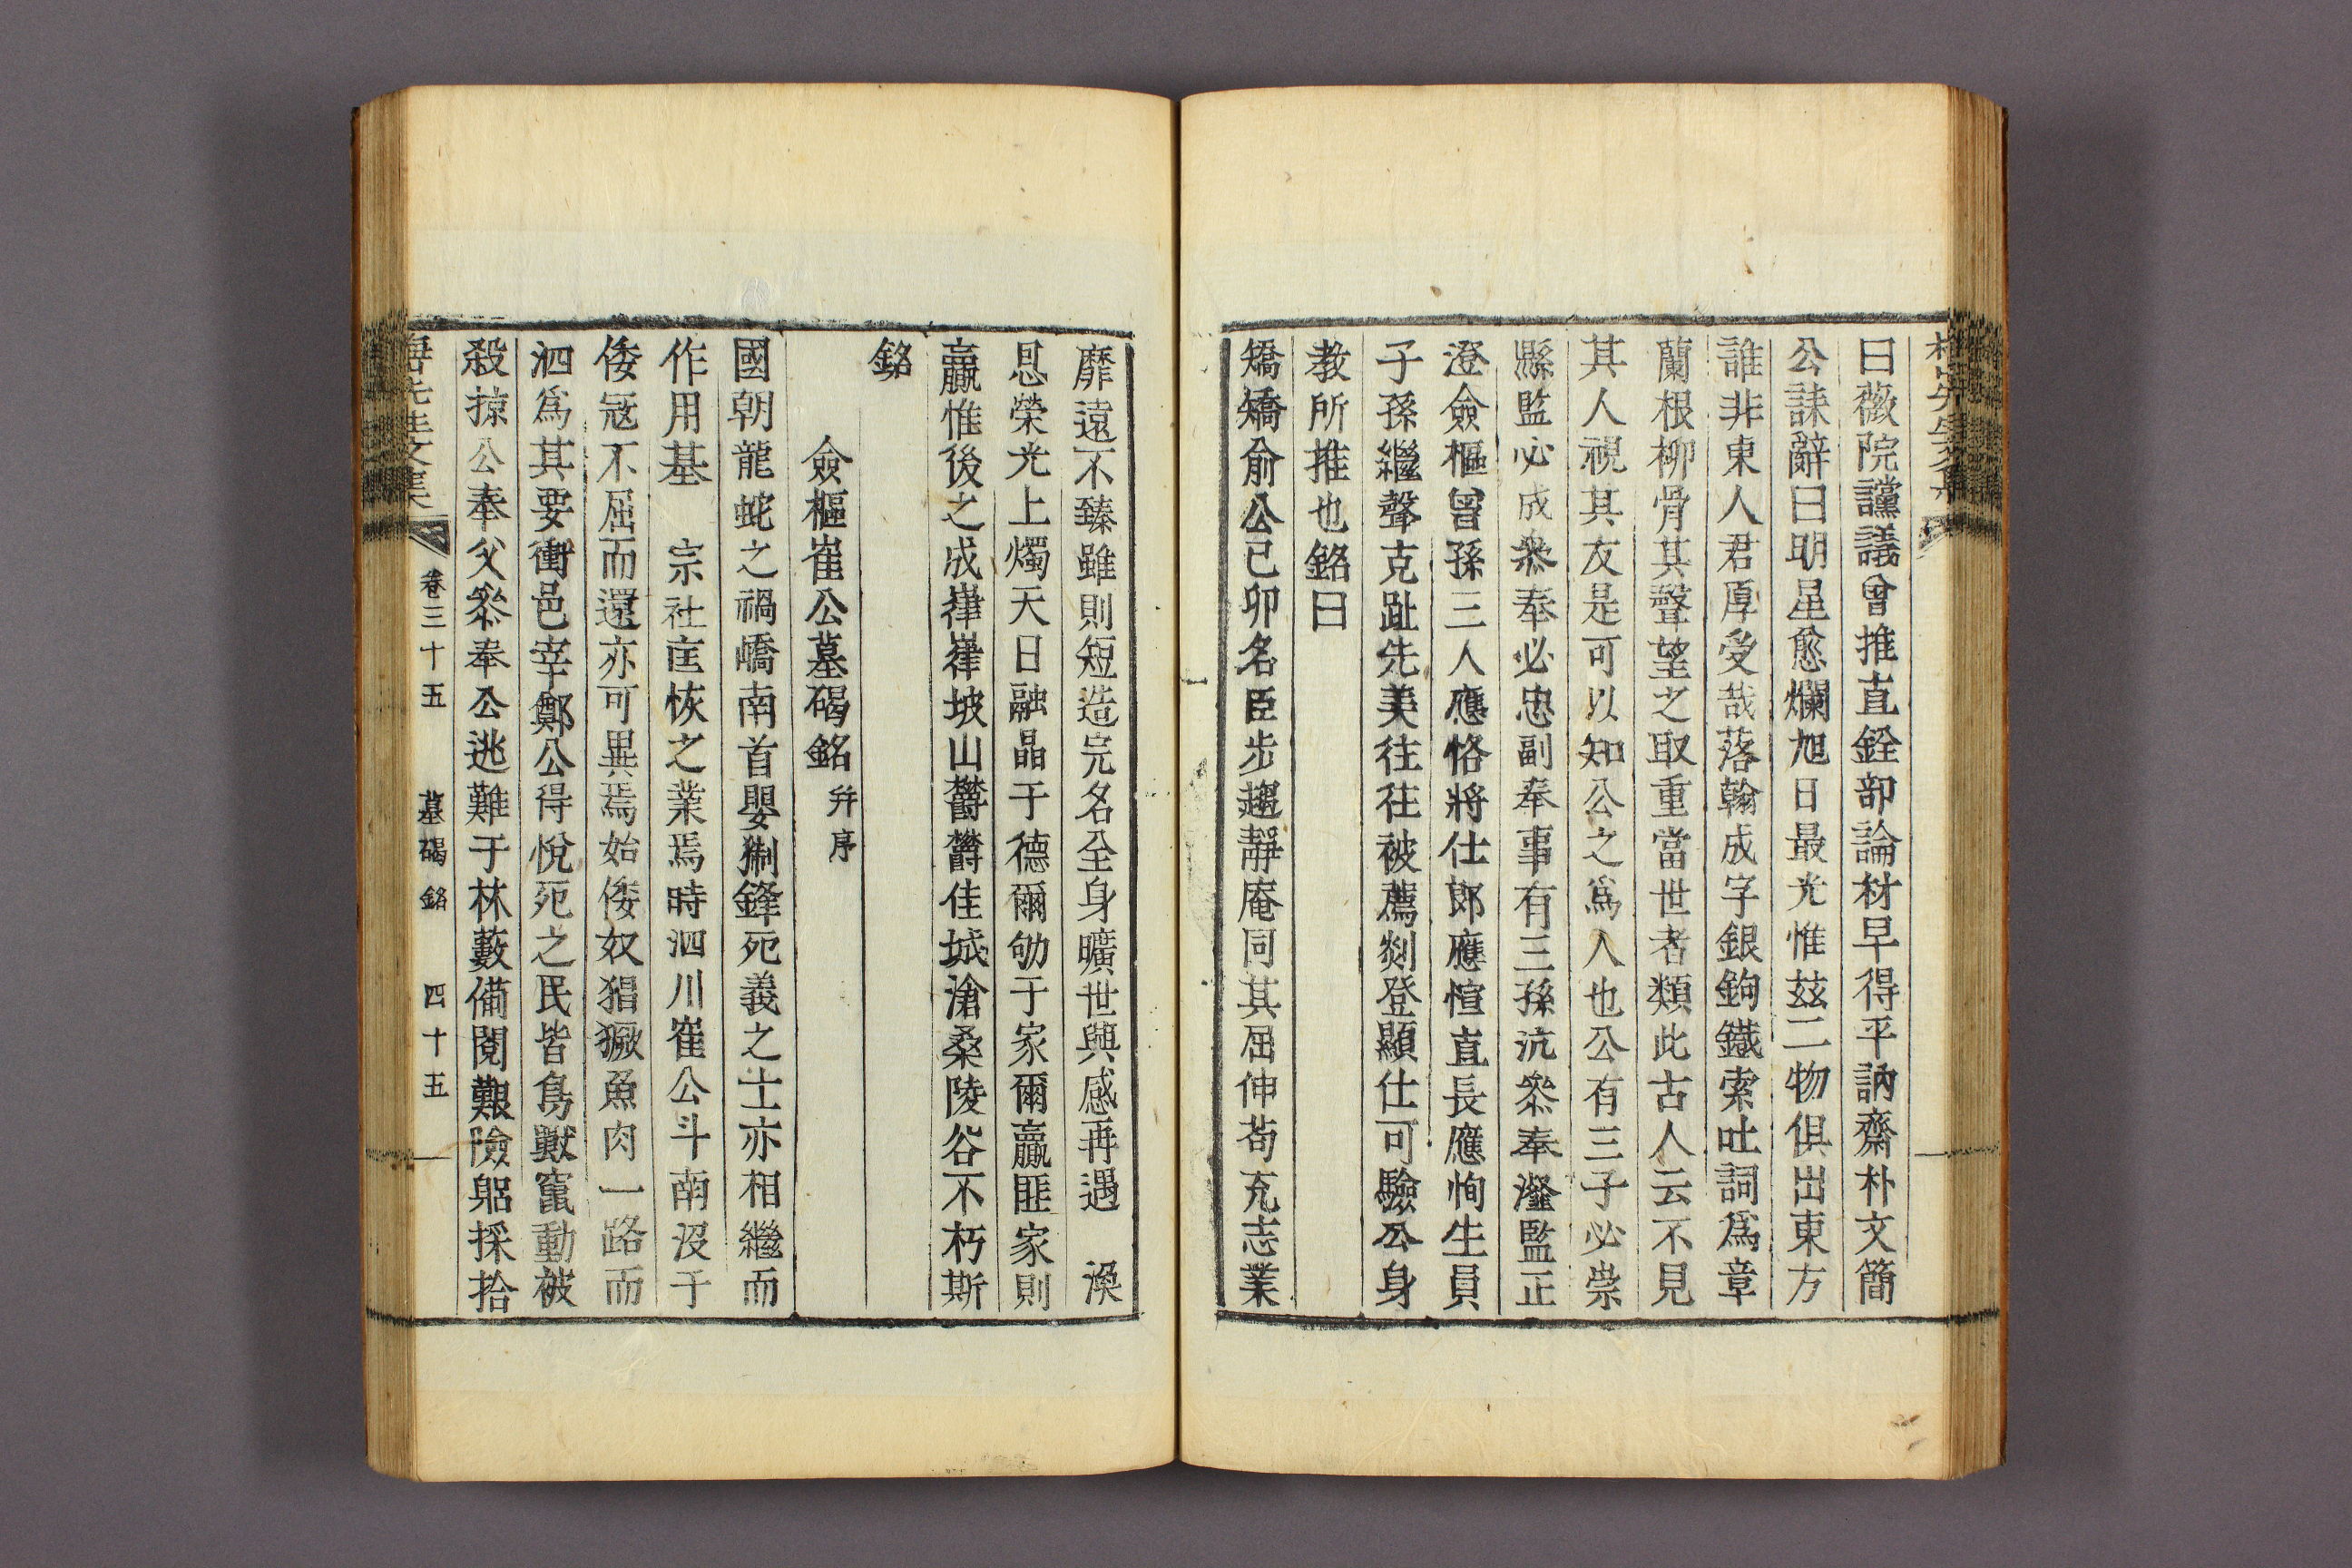 曰薇院讜議曾推直銓部論材早得平訥齋朴文簡
公誄辭曰明星愈爛旭日最光惟玆二物俱出東方
誰非東人君厚受哉落翰成字銀鉤鐵索吐詞爲章
蘭根柳骨其聲望之取重當世者類此古人云不見
其人視其友是可以知公之爲人也公有三子必崇
縣監必成叅奉必忠副奉事有三孫沆叅奉瀣監正
澄僉樞曾孫三人應恪將仕郎應愃直長應恂生員
子孫繼聲克趾先美往往被薦剡登顯仕可驗公身
敎所推也銘曰
矯矯俞公己卯名臣步趨靜庵同其屈伸苟充志業
靡遠不臻雖則短造完名全身曠世興感再遇 渙
恩榮光上燭天日融晶于德爾劬于家爾贏匪家則
贏惟後之成嵂嵂坡山欝欝佳城滄桑陵谷不朽斯
銘
僉樞崔公墓碣銘 幷序
國朝龍蛇之禍嶠南首嬰猘鋒死義之士亦相繼而
作用基 宗社匡恢之業焉時泗川崔公斗南沒于
倭冦不屈而還亦可異焉始倭奴猖獗魚肉一路而
泗爲其要衝邑宰鄭公得悅死之民皆鳥獸竄動被
殺掠公奉父叅奉公逃難于林藪備閱艱險躬採拾
先生文集 卷三十五 墓碣銘 四十五